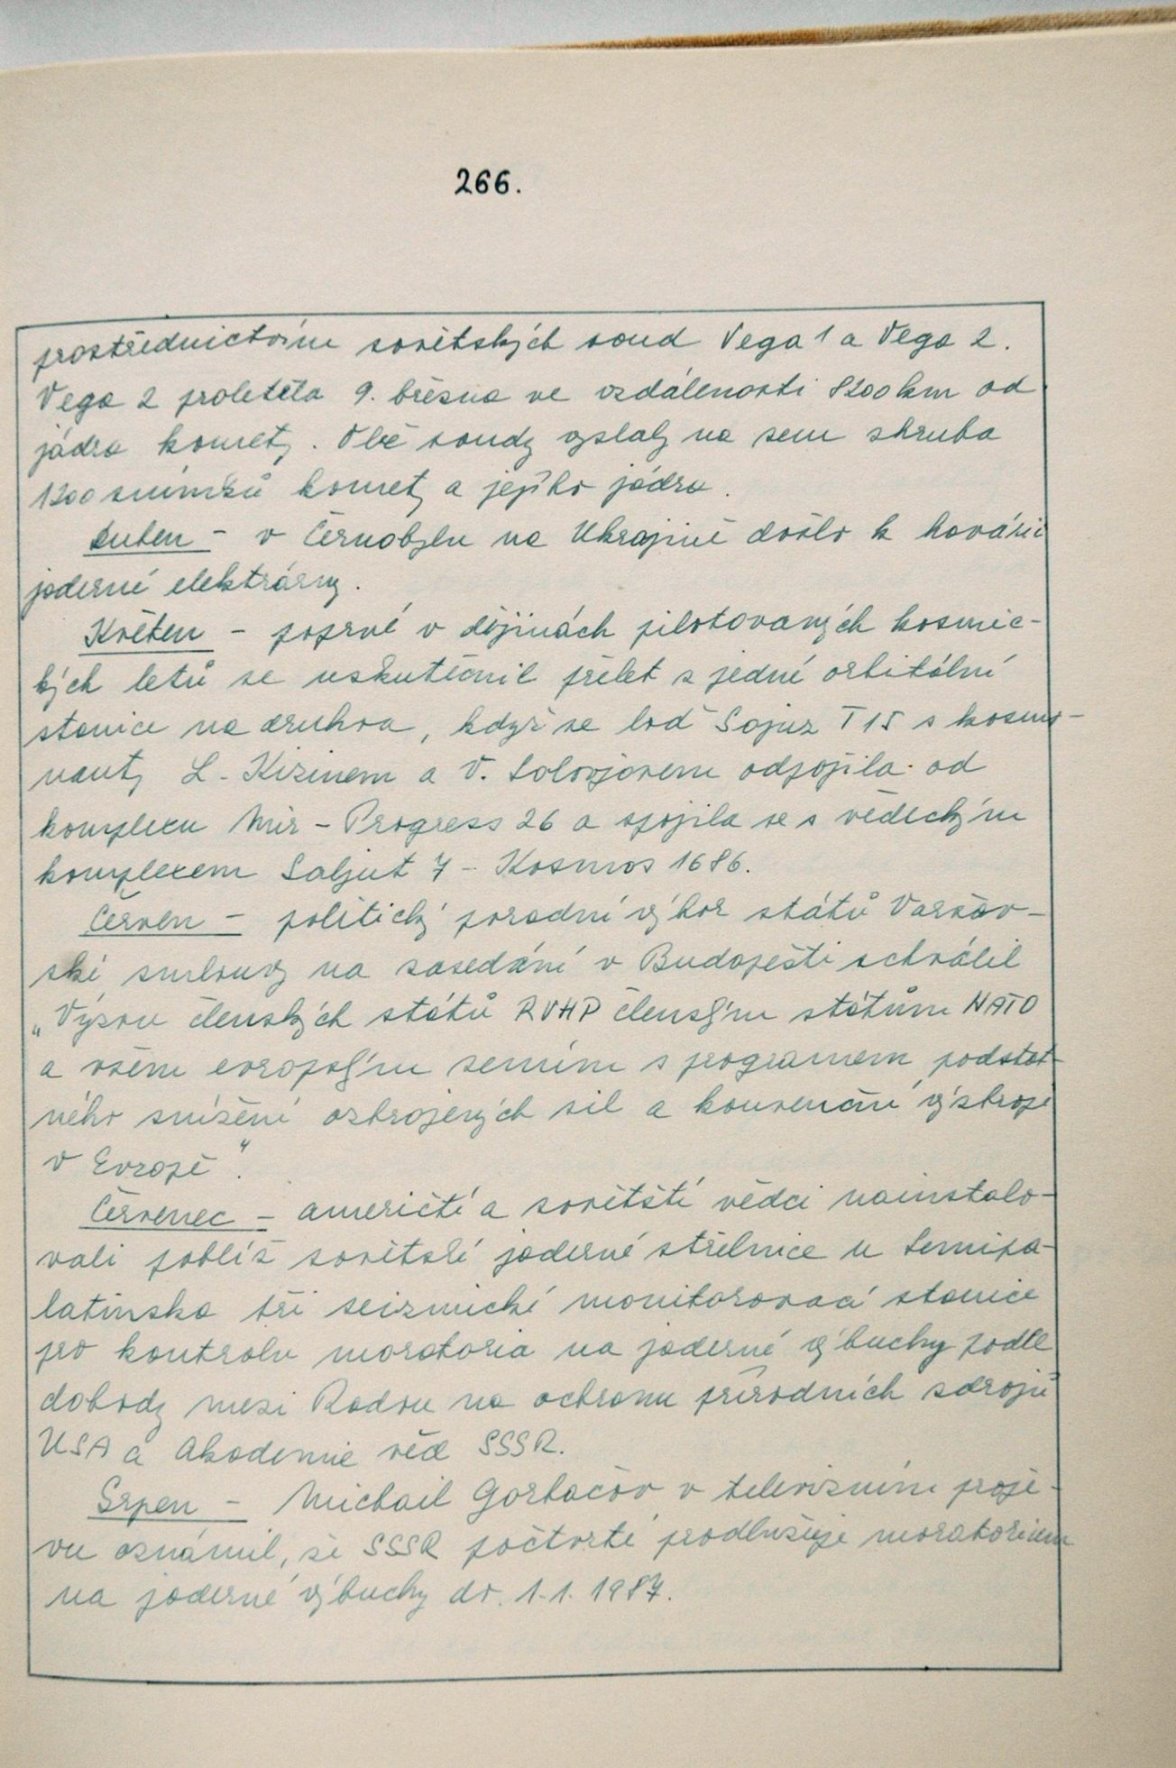 266.
prostřednictvím sovětských sond Vega 1 a Vega 2.
Vega 2 proletěla 9. března ve vzdálenosti 8200 km od
jádra komety. Obě sondy vyslaly na zem zhruba
1200 snímků komety a jejího jádra.
Duben - v Černobylu na Ukrajině došlo k havárii
jaderné elektrárny.
Květen - poprvé v dějinách pilotovaných kosmic-
kých letů se uskutečnil přelet z jedné orbitální
stanice na druhou, když se loď Sojuz T 15 s kosmo-
nauty L. Kizimem a V. Solovjovem odpojila od
komplexu Mir - Progress 26 a spojila se s vědeckým
komplexem Saljut 7 - Kosmos 1686.
Červen - politický poradní výbor států Varšav-
ské smlouvy na zasedání v Budapešti schválil
„Výzvu členských států RVHP členským státům NATO
a všem evropským zemím s programem podstat-
ného snížení ozbrojených sil a konvenční výzbroje
v Evropě".
Červenec - američtí a sovětští vědci nainstalo-
vali poblíž sovětské jaderné střelnice u Semipa-
latinska tři seizmické monitorovací stanice
pro kontrolu moratoria na jaderné výbuchy podle
dohody mezi Radou na ochranu přírodních zdrojů
USA a Akademie věd SSSR.
Srpen - Michail Gorbačov v televizním proje-
vu oznámil, že SSSR počtvrté prodlužuje moratorium
na jaderné výbuchy do 1.1. 1987.